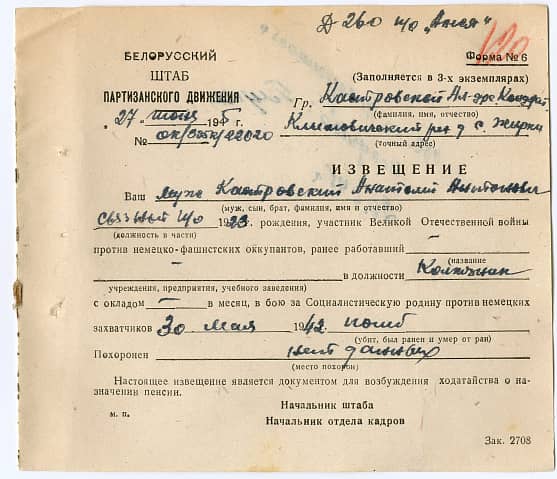 Д 260 п/о „Аися“
БЕЛОРУССКИЙ
ШТАБ
ПАРТИЗАНСКОГО ДВИЖЕНИЯ
„27“ июня 1945 г.
№
Форма № 6
(Заполняется в 3-х экземплярах)
Гр. Кастровской
(фамилия, имя и отчество)
Климовический д.
(точный адрес)
ИЗВЕЩЕНИЕ
Ваш муж Кастровский Анатолий Антонович
(муж, сын, брат, фамилия, имя и отчество)
связный п/о 1923 г. рождения, участник Великой Отечественной войны
(должность в части)
против немецко-фашистских оккупантов, ранее работавший —
(название
— в должности Колхозник
учреждения, предприятия, учебного заведения)
с окладом — в месяц, в бою за Социалистическую родину против немецких
захватчиков 30 мая 1942 погиб
(убит, был ранен и умер от ран)
Похоронен нет данных
(место похорон)
Настоящее извещение является документом для возбуждения ходатайства о на-
значении пенсии.
м. п.
Начальник штаба
Начальник отдела кадров
Зак. 2708